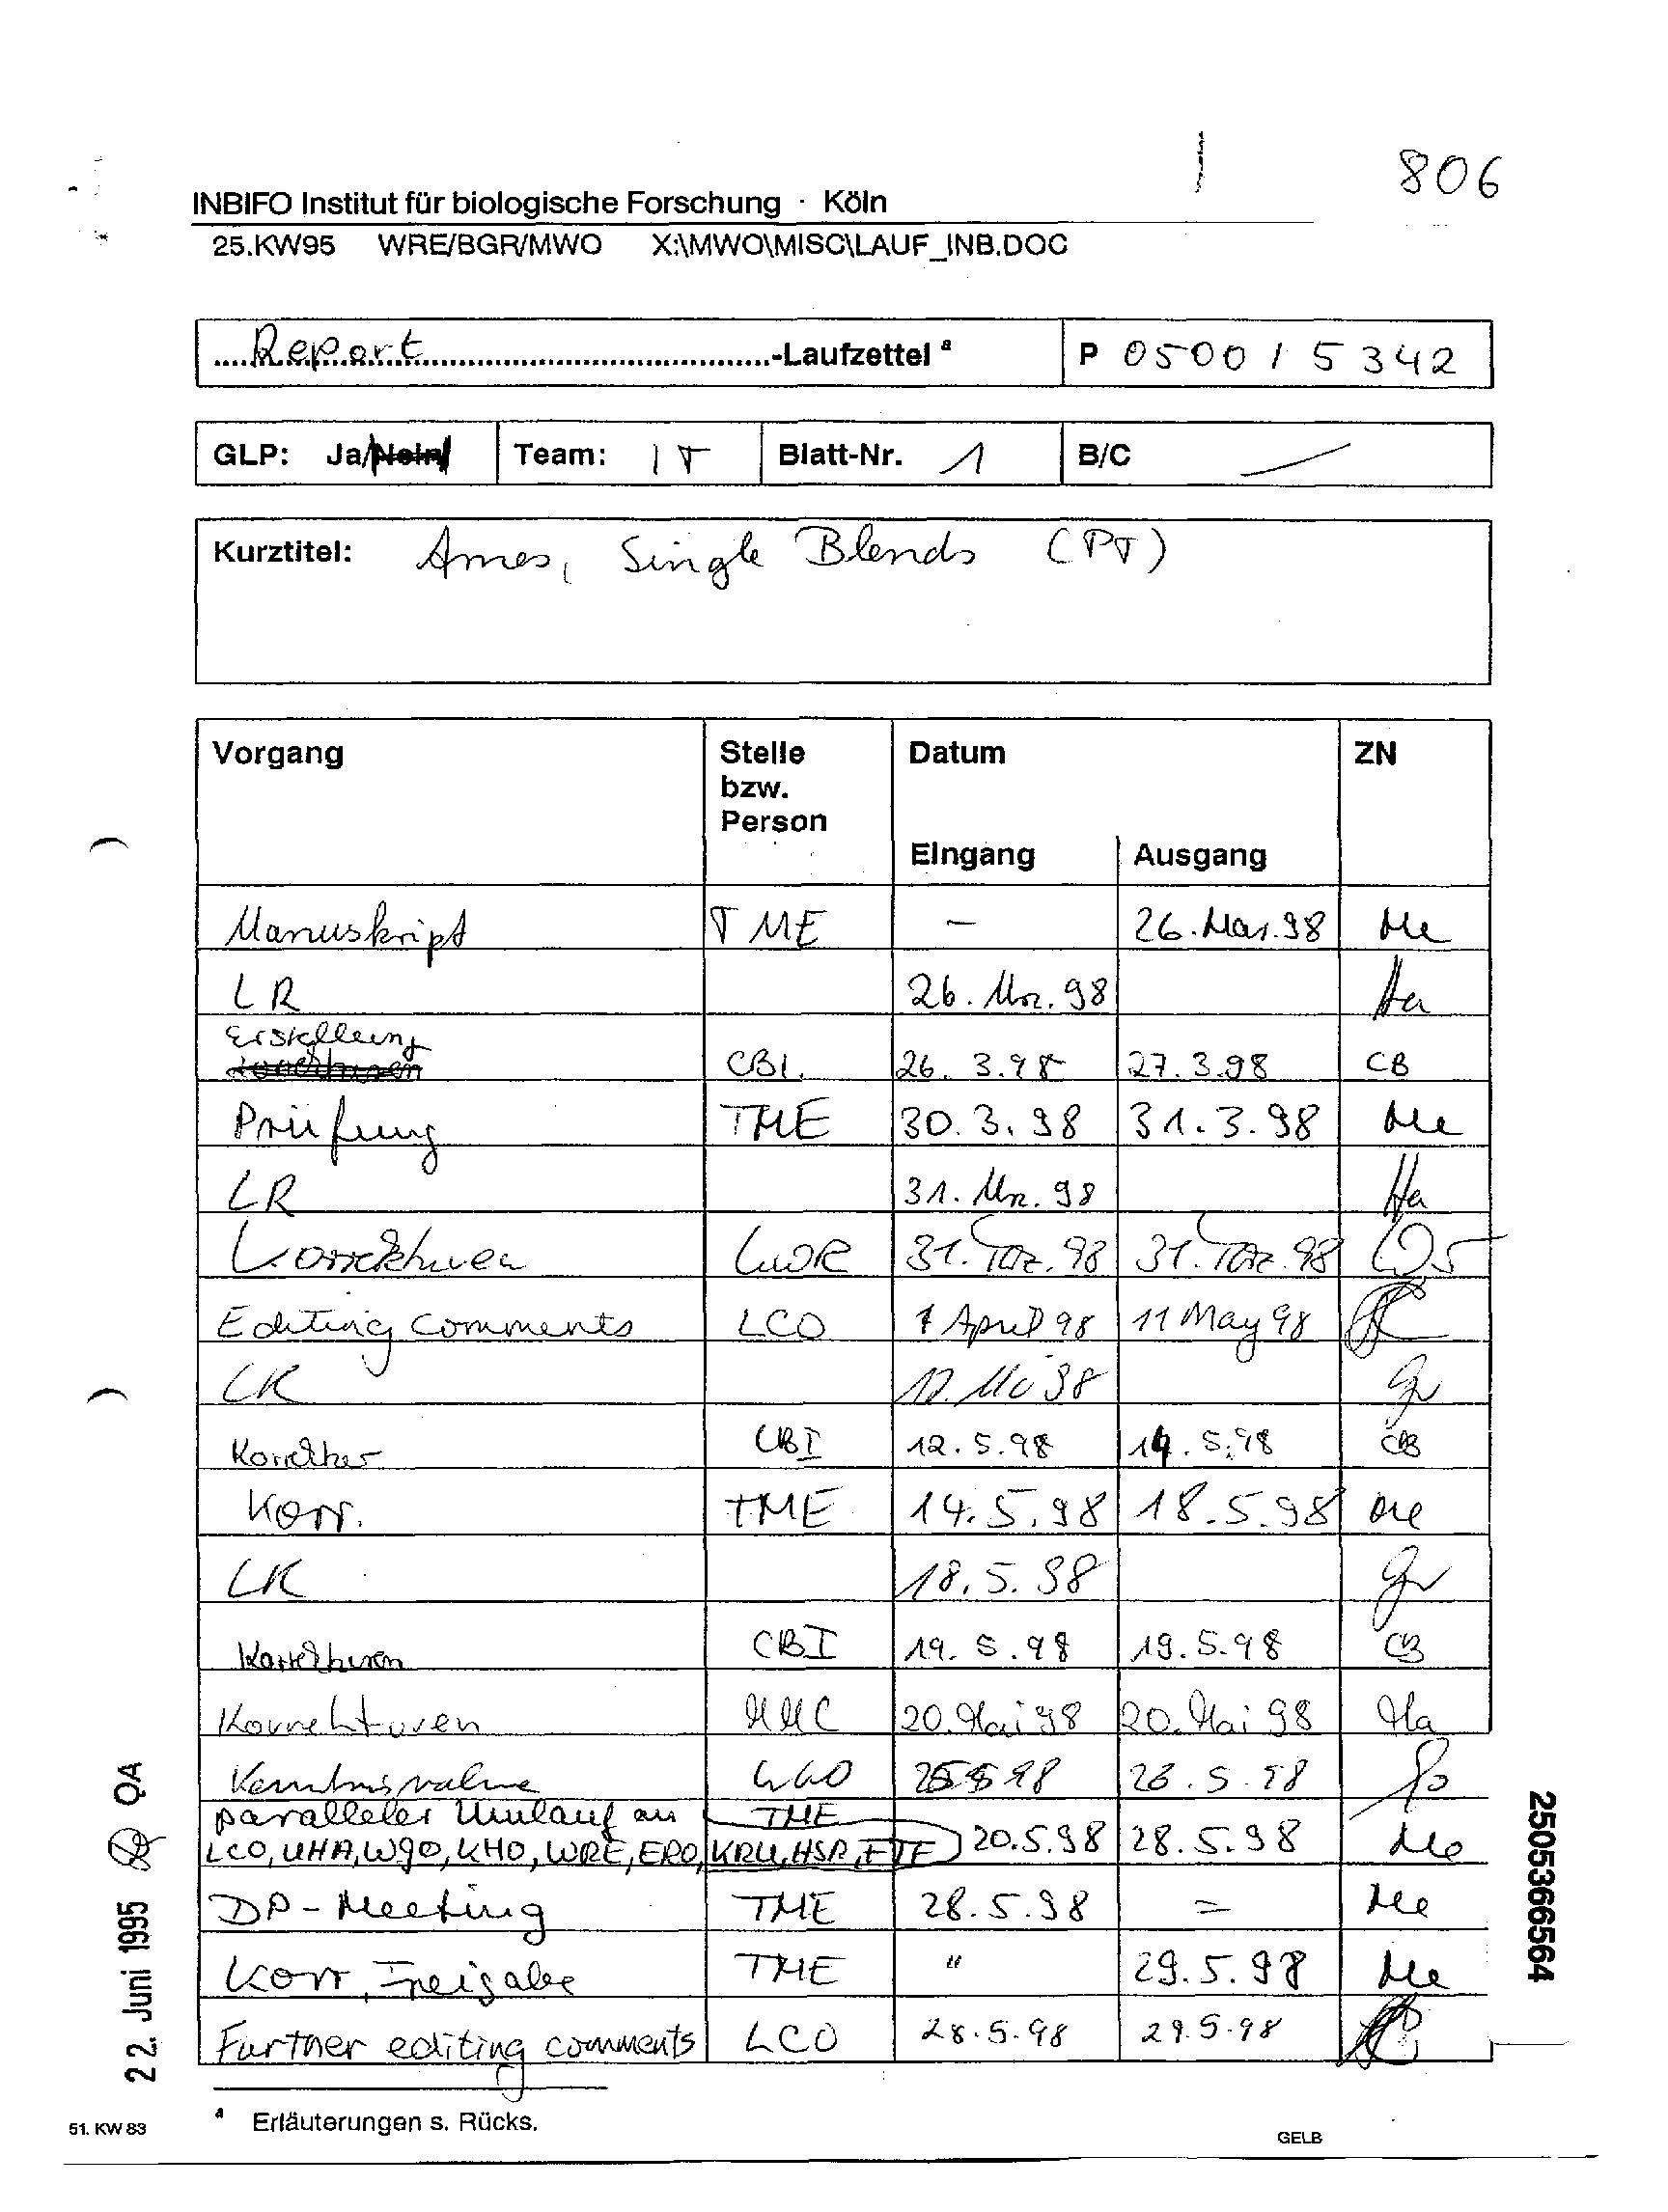 806
INBIFO Institut für biologische Forschung · Köln
25.KW95 WRE/BGR/MWO X:\MWO\MISC\LAUF_INB.DOC
Report -Laufzettel a P 0500 / 5342
GLP: Ja/Nein Team: IT Blatt-Nr. 1 B/C —
Kurztitel: Ames, Single Blends (PT)
Vorgang Stelle bzw. Person Datum ZN
Eingang Ausgang
Manuskript TME – 26.Mar.98 Me
LR 26. Mrz. 98 Ha
Erstellung
CBI 26. 3.98 27.3.98 CB
Prüfung TME 30.3.98 31.3.98 Me
LR 31. Mrz. 98 Ha
Korrekturen 31. 98 31. 98
Editing comments LCO 7 April 98 11 May 98
LR 98
Korrektur CBI 12.5.98 14.5.98 CB
Korr. TME 14.5.98 18.5.98 Me
LR 18.5.98
Korrekturen CBI 19.5.98 19.5.98 CB
Korrekturen 20.Mai 98 20.Mai 98
Kenntnisnahme 98 5.98
paralleler Umlauf an TME
LCO, UHA, WGO, KHO, WRE, ERO, KRU, HSR, ETE 20.5.98 28.5.98 Me
DP-Meeting TME 28.5.98 = Me
Korr, Freigabe TME " 29.5.98 Me
Further editing comments LCO 28.5.98 29.5.98
a Erläuterungen s. Rücks.
51. KW 83
GELB
22. Juni 1995 QA
2505366564